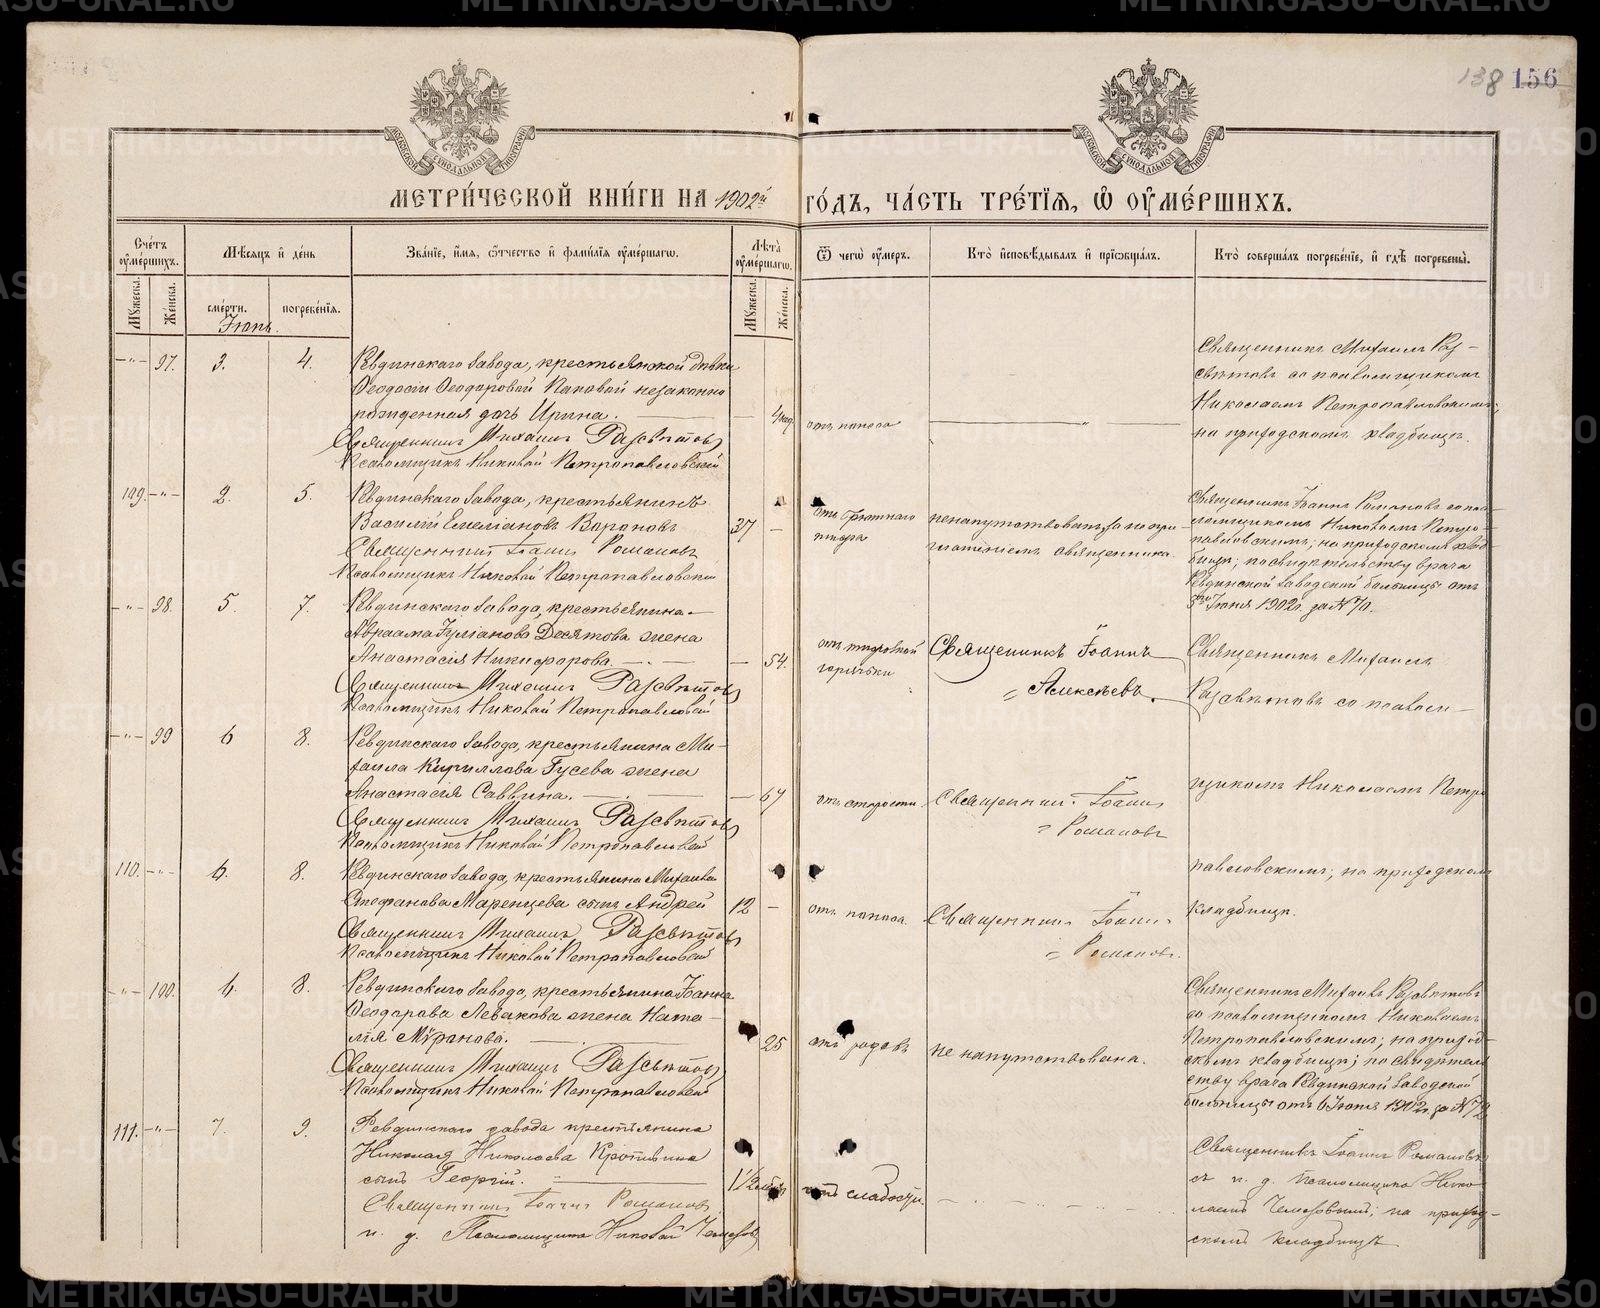 138 156
МОСКОВСКОЙ СѴНОДАЛЬНОЙ ТИПОГРАФІИ
МОСКОВСКОЙ СѴНОДАЛЬНОЙ ТИПОГРАФІИ
МЕТРИ́ЧЕСКОЙ КНИ́ГИ НА 1902й ГО́ДЪ, ЧА́СТЬ ТРЕ́ТІѦ, Ѽ ОУ҆МЕ́РШИХЪ.
Сче́тъ оу҆ме́ршихъ.
Мꙋ́жеска.
Же́нска.
Мѣ́сѧцъ и҆ де́нь
сме́рти.
погребе́нїѧ.
Зва́нїе, и҆́мѧ, ѻ҆́тчество и҆ фами́лїѧ оу҆ме́ршагѡ.
Лѣ́та оу҆ме́ршагѡ.
Мꙋ́жеска.
Же́нска.
Ѿ чегѡ̀ оу҆́меръ.
Кто̀ и҆сповѣ́дывалъ и҆ прїѡбща́лъ.
Кто̀ соверша́лъ погребе́нїе, и҆ гдѣ̀ погребены̀.
Іюнь.
-"- 97. 3. 4.
Ревдинскаго завода, крестьянской дѣвки
Ѳеодосіи Ѳеодоровой Паковой незаконно
рожденная дочь Ирина.
4 нед.
отъ поноса
Священникъ Михаилъ Разсвѣтовъ
Псаломщикъ Николай Петропавловскій
Священникъ Михаилъ Раз-
свѣтовъ со псаломщикомъ
Николаемъ Петропавловскимъ;
на приходскомъ кладбищѣ.
109. -"- 2. 5.
Ревдинскаго завода, крестьянинъ
Василій Емеліановъ Вороновъ
37 -
Священникъ Іоаннъ Романовъ
Псаломщикъ Николай Петропавловскій
ненапутствованъ, за не при-
глашеніемъ священника.
Священникъ Іоаннъ Романовъ со пса-
ломщикомъ Николаемъ Петро-
павловскимъ; на приходскомъ клад-
бищѣ; по свидѣтельству врача
Ревдинской заводской больницы отъ
5го Іюня 1902г. за № 70.
-"- 98. 5. 7.
Ревдинскаго завода, крестьянина
Авраама Іуліанова Десятова жена
Анастасія Никифорова.
- 54.
Священникъ Михаилъ Разсвѣтовъ
Псаломщикъ Николай Петропавловскій
отъ тифозной
горячки
Священникъ Іоаннъ
Алексѣевъ.
Священникъ Михаилъ
Разсвѣтовъ со псалом-
-"- 99 6 8.
Ревдинскаго завода, крестьянина Ми-
хаила Кириллова Гусева жена
Анастасія Саввина.
- 67
Священникъ Михаилъ Разсвѣтовъ
Псаломщикъ Николай Петропавловскій
отъ старости.
Священникъ Іоаннъ
Романовъ
щикомъ Николаемъ Петро
110. -"- 6. 8.
Ревдинскаго завода, крестьянина Михаила
Стефанова Маренцева сынъ Андрей
12 -
Священникъ Михаилъ Разсвѣтовъ
Псаломщикъ Николай Петропавловскій
отъ поноса.
Священникъ Іоаннъ
Романовъ.
павловскимъ; на приходскомъ
кладбищѣ.
-"- 100. 6. 8.
Ревдинскаго завода, крестьянина Іоанна
Ѳеодорова Левакова жена Ната-
лія Миронова.
25
Священникъ Михаилъ Разсвѣтовъ
Псаломщикъ Николай Петропавловскій
отъ родовъ
не напутствована.
Священникъ Михаилъ Разсвѣтовъ
со псаломщикомъ Николаемъ
Петропавловскимъ; на приход-
скомъ кладбищѣ; по свидѣтель
ству врача Ревдинской заводской
больницы отъ 6 Іюня 1902г. за № 72
111. -"- 7. 9.
Ревдинскаго завода крестьянина
Николая Николаева Кропивина
сынъ Георгій.
1 1/2
Священникъ Іоаннъ Романовъ
и. д. Псаломщика Николай
отъ слабости.
Священникъ Іоаннъ Романовъ
съ и. д. Псаломщика Нико
лаемъ на приход-
скомъ кладбищѣ
METRIKI.GASO-URAL.RU